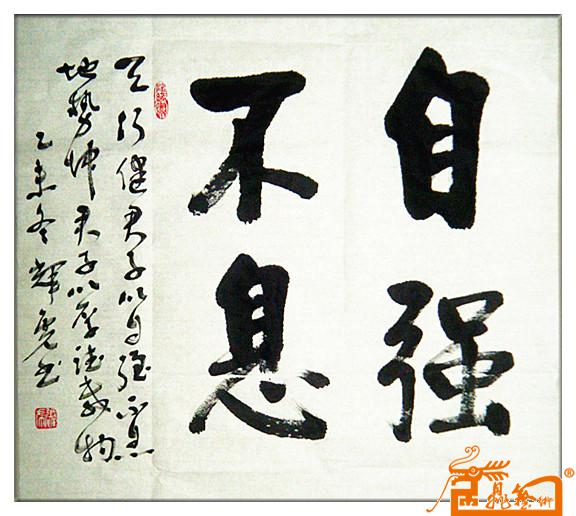 自强
不息
天行健君子以自强不息
地势坤君子以厚德载物
乙未冬辉亮书